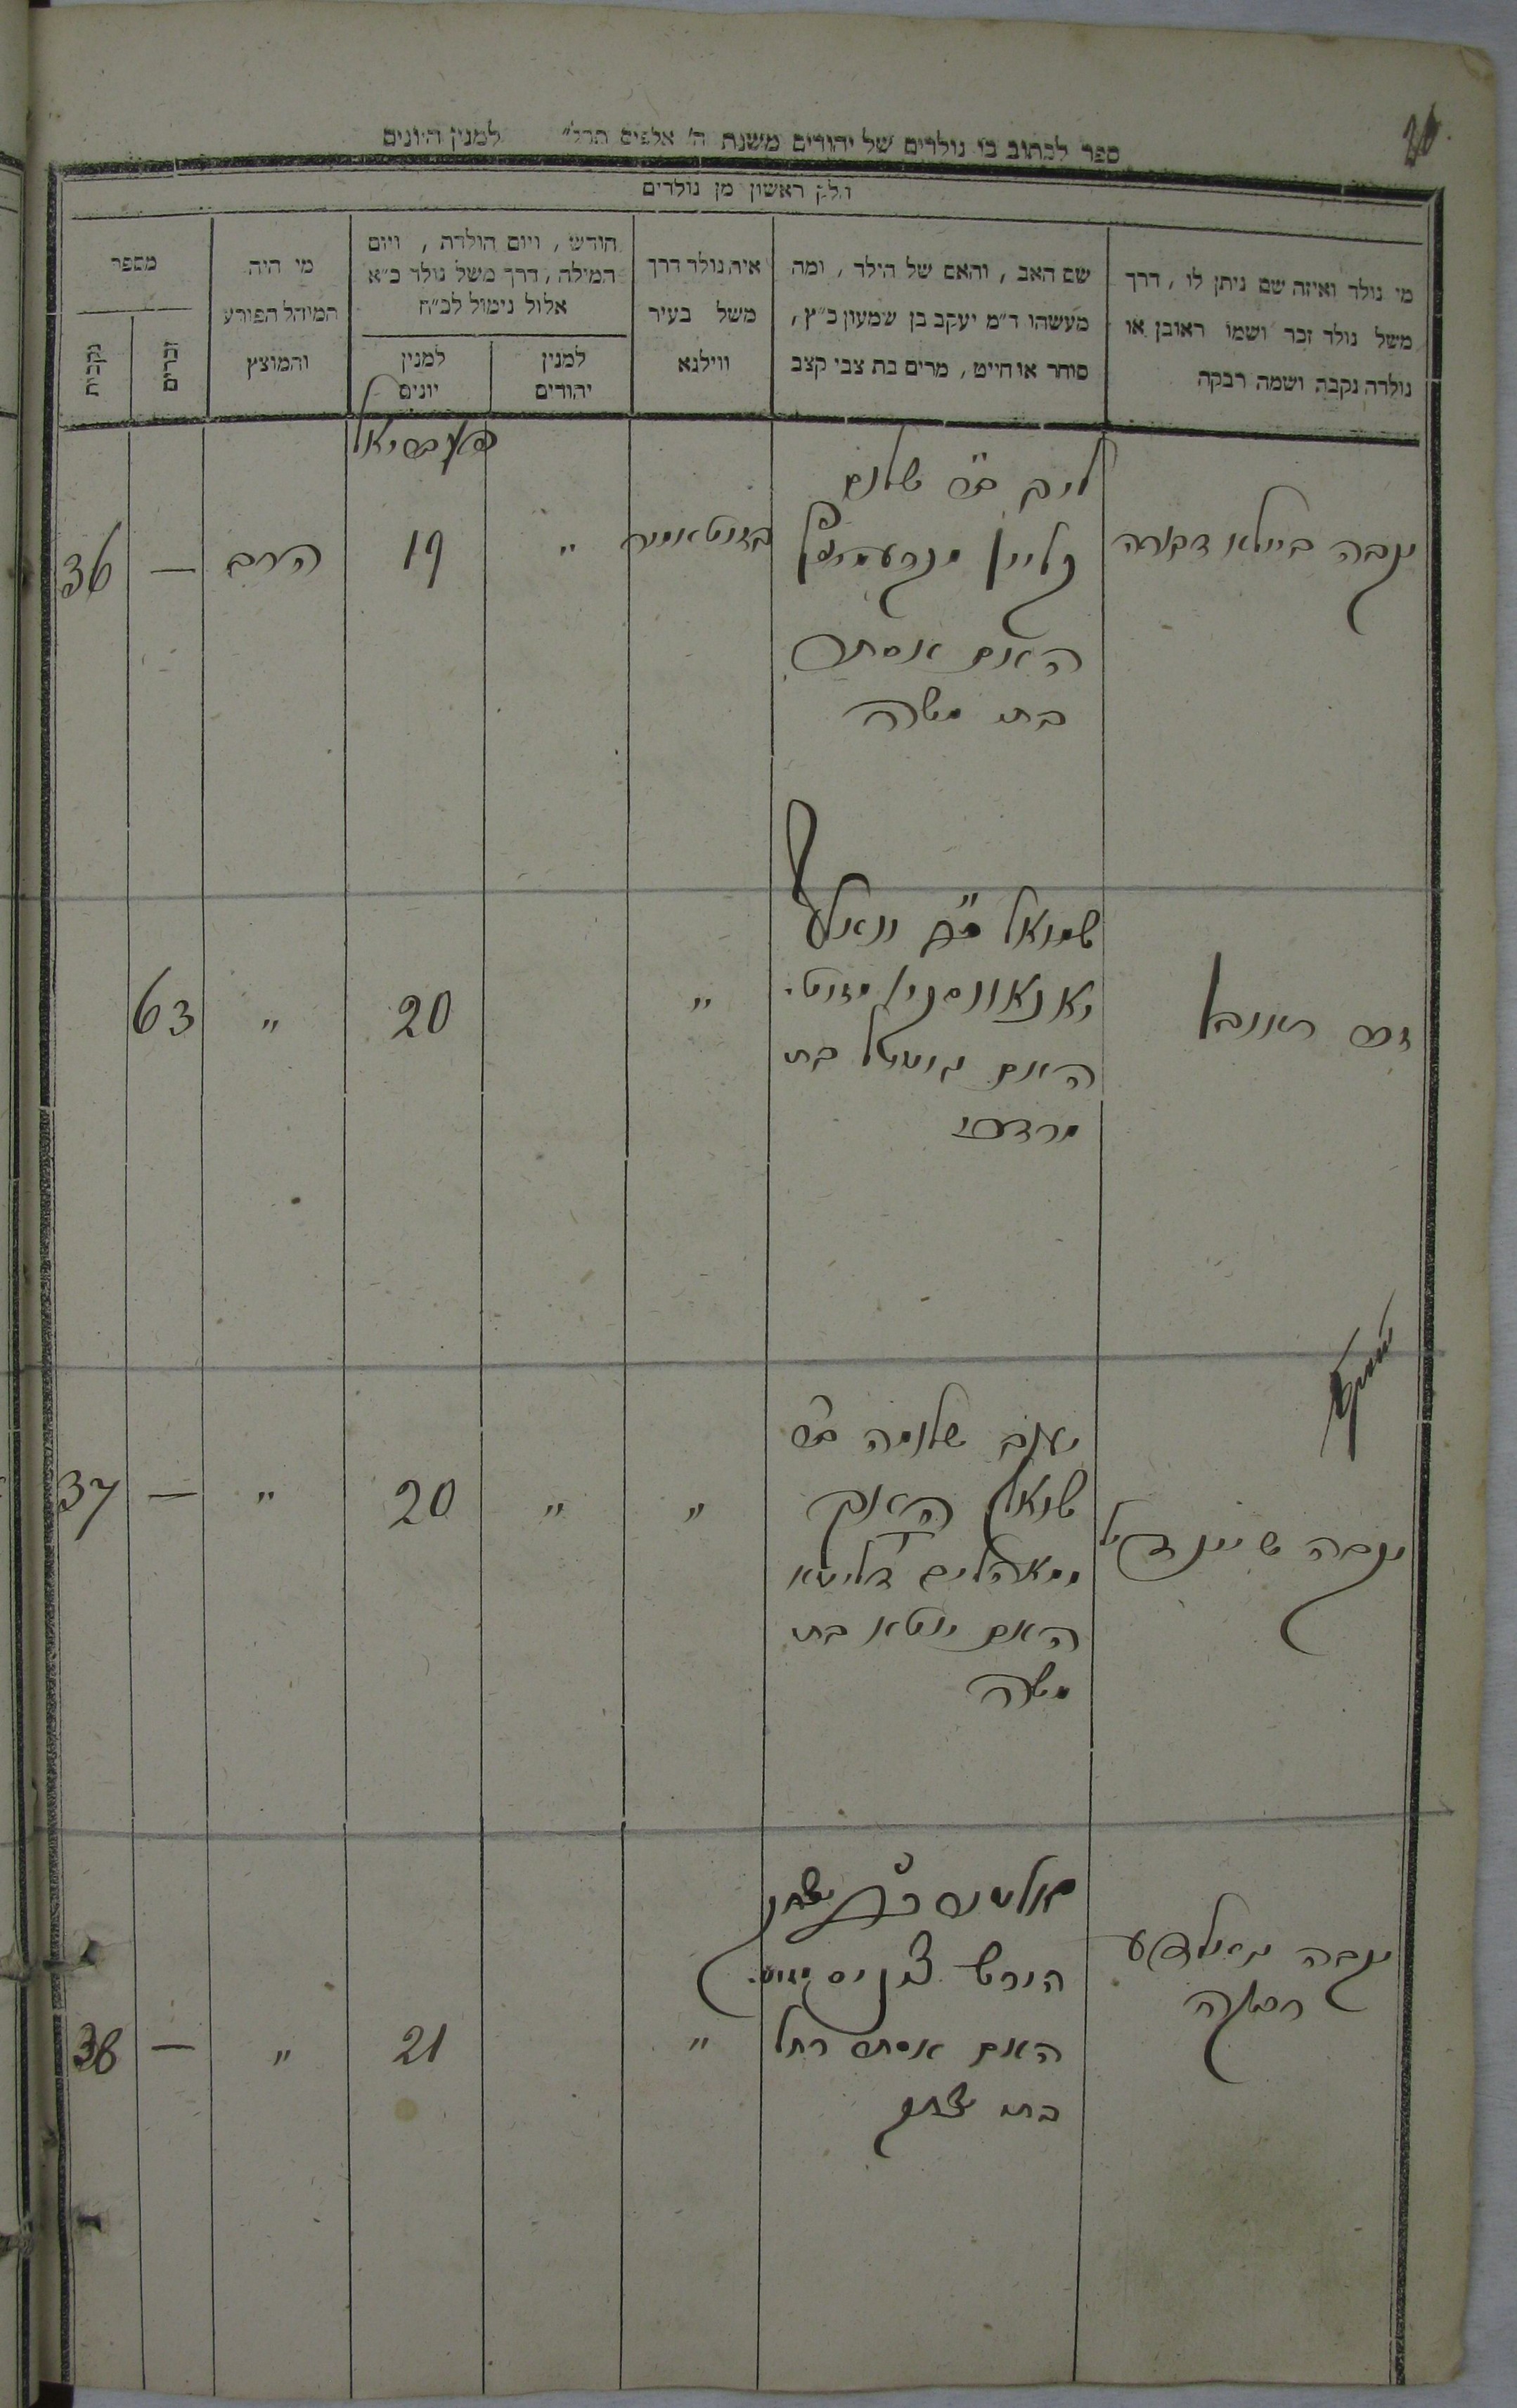 20
ספר לכתוב בו נולדים של יהודים משנת ה׳ אלפים תרל״ למנין היונים
חלק ראשון מן נולדים
מי נולד ואיזה שם ניתן לו , דרך
משל נולד זכר ושמו ראובן או
נולדה נקבה ושמה רבקה
שם האב , והאם של הילד , ומה
מעשהו ד״מ יעקב בן שמעון כ״ץ ,
סוחר או חייט , מרים בת צבי קצב
איה נולד דרך
משל בעיר
ווילנא
חודש , ויום הולדת , ויום
המילה , דרך משל נולד כ״א
אלול נימול לכ״ח
למנין
יהודים
למנין
יונים
מי היה
המוהל הפורע
והמוצץ
מספר
זכרים
נקבות
נקבה ביילא דבורה
ליב ב״ר שלום
קליין
האם אסתר
בת משה
בזיטאמיר
״
19
הרב
—
36
זכר ראובן
שמואל ב״ר וואלף
האם בת
מרדכי
״
20
״
63
נקבה שיינדיל
יעקב שלמה ב״ר
שמואל
האם יוטא בת
משה
״
״
20
״
—
37
נקבה גאלדע
רבקה
ב״ר יצחק
הירש
האם אסתר רחל
בת יצחק
״
21
״
—
38